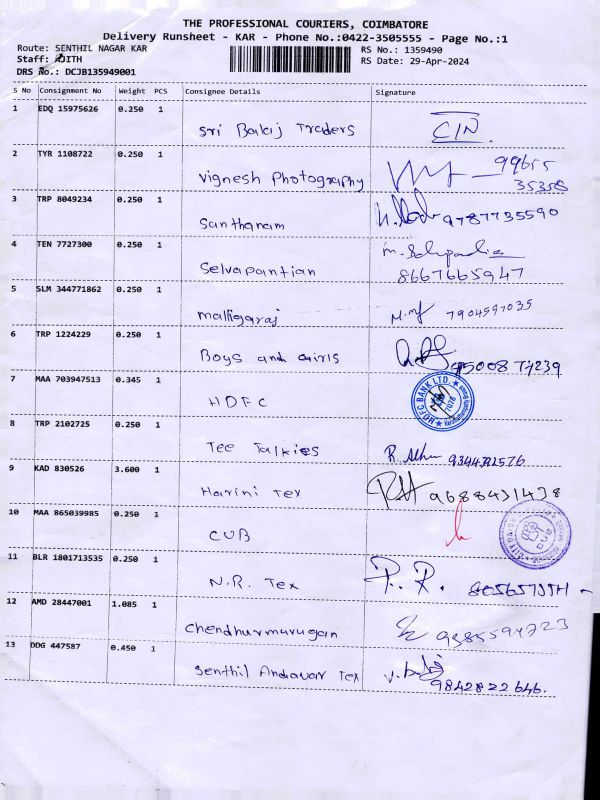 THE PROFESSIONAL COURIERS, COIMBATORE
Delivery Runsheet - KAR - Phone No.:0422-3505555 - Page No.:1
Route: SENTHIL NAGAR KAR
RS No.: 1359490
Staff: ADITH
RS Date: 29-Apr-2024
DRS No.: DCJB135949001
S No Consignment No Weight PCS Consignee Details Signature
1 EDQ 15975626 0.250 1
Sri Balaj Traders CIN
2 TYR 1108722 0.250 1
Vignesh Photography 99655
35358
3 TRP 8049234 0.250 1
Santhanam 9787735590
4 TEN 7727300 0.250 1
Selvapantian
8667665947
5 SLM 344771862 0.250 1
malligaraj 7904597035
6 TRP 1224229 0.250 1
Boys and Girls
7 MAA 703947513 0.345 1
HDFC HDFC BANK LTD.
8 TRP 2102725 0.250 1
Tee Talkies
9 KAD 830526 3.600 1
Harini Tex 9688431438
10 MAA 865039985 0.250 1
CUB
11 BLR 1801713535 0.250 1
N.R. Tex P. R.
12 AMD 28447001 1.085 1
Chendhurmurugan
13 DDG 447587 0.450 1
Senthil Andavar Tex
9842822646.